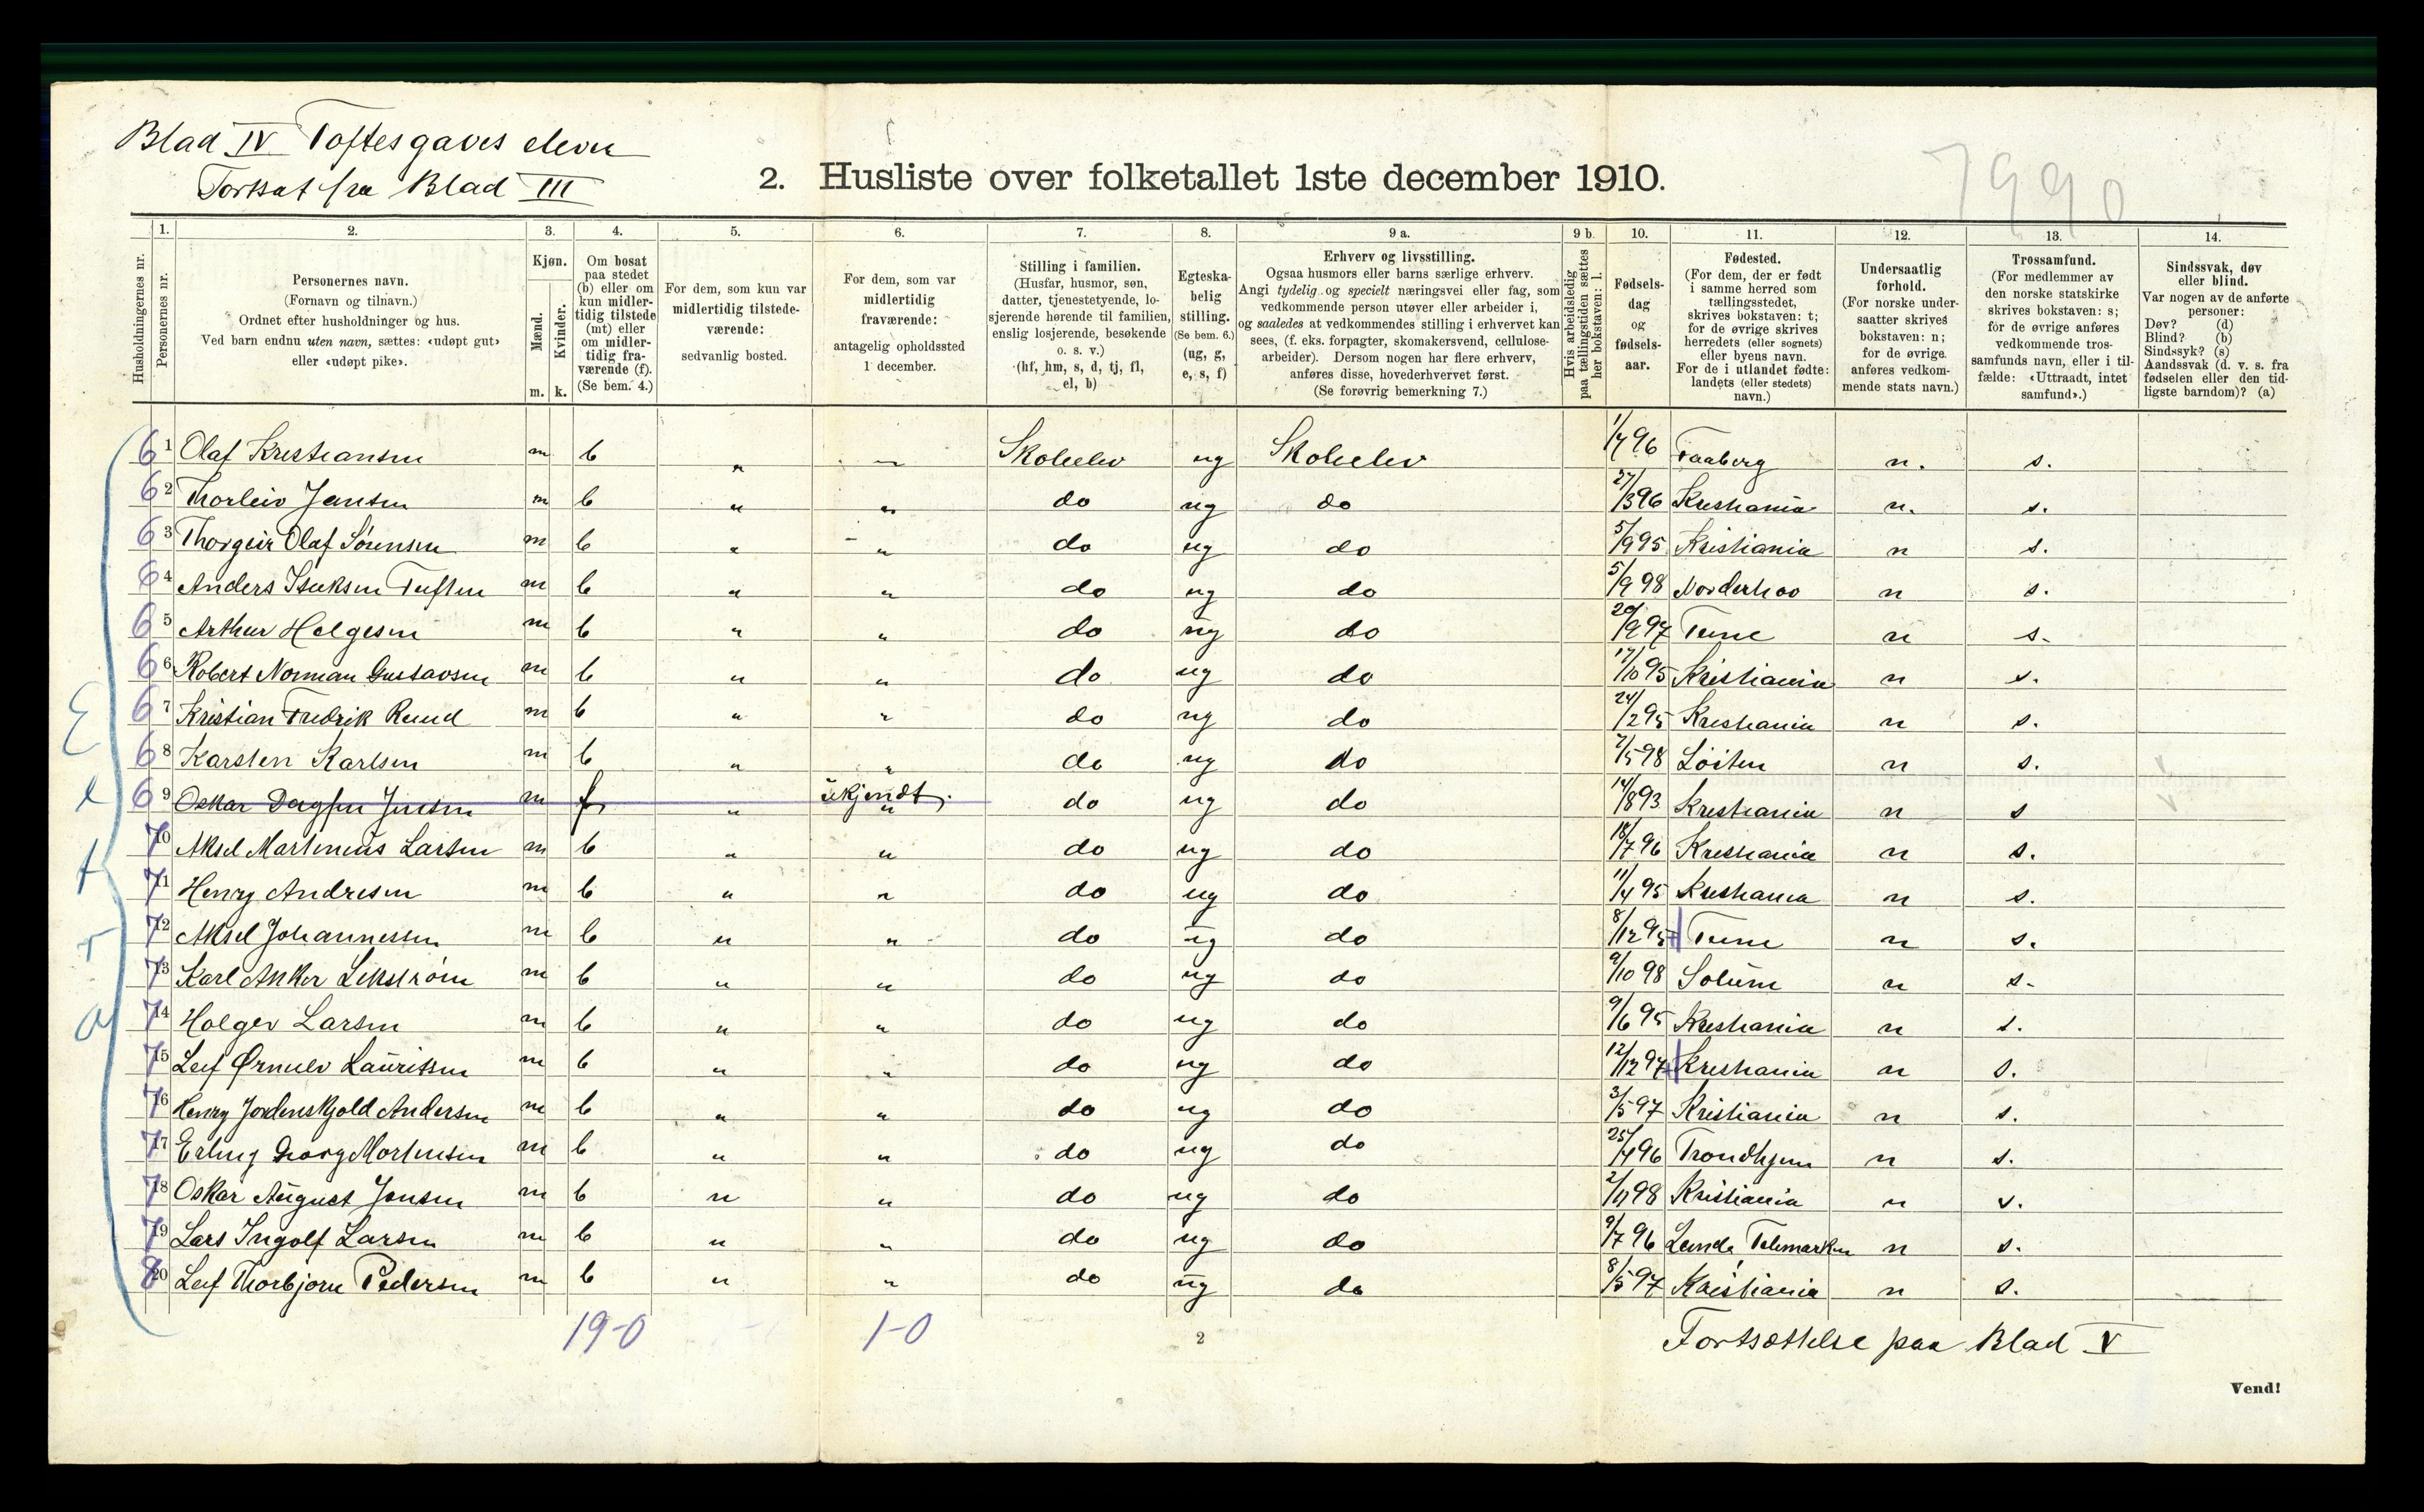 Blad IV Toftesgaves elever
Fortsat fra Blad III
7990
2. Husliste over folketallet 1ste december 1910.
Husholdningernes nr.
1. Personernes nr.
2. Personernes navn.
(Fornavn og tilnavn.)
Ordnet efter husholdninger og hus.
Ved barn endnu uten navn, sættes: «udøpt gut»
eller «udøpt pike».
3. Kjøn.
Mænd. m.
Kvinder. k.
4. Om bosat
paa stedet
(b) eller om
kun midler-
tidig tilstede
(mt) eller
om midler-
tidig fra-
værende (f).
(Se bem. 4.)
5. For dem, som kun var
midlertidig tilstede-
værende:
sedvanlig bosted.
6. For dem, som var
midlertidig
fraværende:
antagelig opholdssted
1 december.
7. Stilling i familien.
(Husfar, husmor, søn,
datter, tjenestetyende, lo-
sjerende hørende til familien,
enslig losjerende, besøkende
o. s. v.)
(hf, hm, s, d, tj, fl,
el, b)
8. Egteska-
belig
stilling.
(Se bem. 6.)
(ug, g,
e, s, f)
9 a. Erhverv og livsstilling.
Ogsaa husmors eller barns særlige erhverv.
Angi tydelig og specielt næringsvei eller fag, som
vedkommende person utøver eller arbeider i,
og saaledes at vedkommendes stilling i erhvervet kan
sees, (f. eks. forpagter, skomakersvend, cellulose-
arbeider). Dersom nogen har flere erhverv,
anføres disse, hovederhvervet først.
(Se forøvrig bemerkning 7.)
9 b. Hvis arbeidsledig
paa tællingstiden sættes
her bokstaven: l.
10. Fødsels-
dag
og
fødsels-
aar.
11. Fødested.
(For dem, der er født
i samme herred som
tællingsstedet,
skrives bokstaven: t;
for de øvrige skrives
herredets (eller sognets)
eller byens navn.
For de i utlandet fødte:
landets (eller stedets)
navn.)
12. Undersaatlig
forhold.
(For norske under-
saatter skrives
bokstaven: n;
for de øvrige
anføres vedkom-
mende stats navn.)
13. Trossamfund.
(For medlemmer av
den norske statskirke
skrives bokstaven: s;
for de øvrige anføres
vedkommende tros-
samfunds navn, eller i til-
fælde: «Uttraadt, intet
samfund».)
14. Sindssvak, døv
eller blind.
Var nogen av de anførte
personer:
Døv? (d)
Blind? (b)
Sindssyk? (s)
Aandssvak (d. v. s. fra
fødselen eller den tid-
ligste barndom)? (a)
Extra
61 Olaf Kristiansen m b " " Skoleelev ug Skoleelev 1/7 96 Faaberg n. s.
62 Thorleiv Jensen m b " " do ug do 27/3 96 Kristiania n. s.
63 Thorgeir Olaf Sørensen m b " " do ug do 5/9 95 Kristiania n s.
64 Anders Isaksen Tuften m b " " do ug do 5/9 98 Norderhov n s.
65 Arthur Helgesen m b " " do ug do 20/9 97 Tune n s.
66 Robert Norman Gustavsen m b " " do ug do 17/10 95 Kristiania n s.
67 Kristian Fredrik Ruud m b " " do ug do 24/2 95 Kristiania n s.
68 Karsten Karlsen m b " " do ug do 7/5 98 Løiten n s.
69 Oskar Dagfin Jensen m f " ukjendt. " do ug do 14/8 93 Kristiania n s
70 Aksel Martinius Larsen m b " " do ug do 18/7 96 Kristiania n s.
71 Henry Andresen m b " " do ug do 11/4 95 Kristiania n s.
72 Aksel Johannessen m b " " do ug do 8/12 95 Tune n s.
73 Karl Anker Lekstrøm m b " " do ug do 9/10 98 Solum n s.
74 Holger Larsen m b " " do ug do 9/6 95 Kristiania n s.
75 Leif Ørnulv Lauritsen m b " " do ug do 12/12 97 Kristiania n s.
76 Henry Jordenskjold Andersen m b " " do ug do 3/5 97 Kristiania n s.
77 Erling Georg Mortensen m b " " do ug do 25/4 96 Trondhjem n s.
78 Oskar August Jensen m b " " do ug do 2/11 98 Kristiania n s.
79 Lars Ingolf Larsen m b " " do ug do 9/7 96 Lunde, Telemarken n s.
80 Leif Thorbjørn Pedersen m b " " do ug do 8/5 97 Kristiania n s.
19-0 1-0
2
Fortsættelse paa Blad V
Vend!